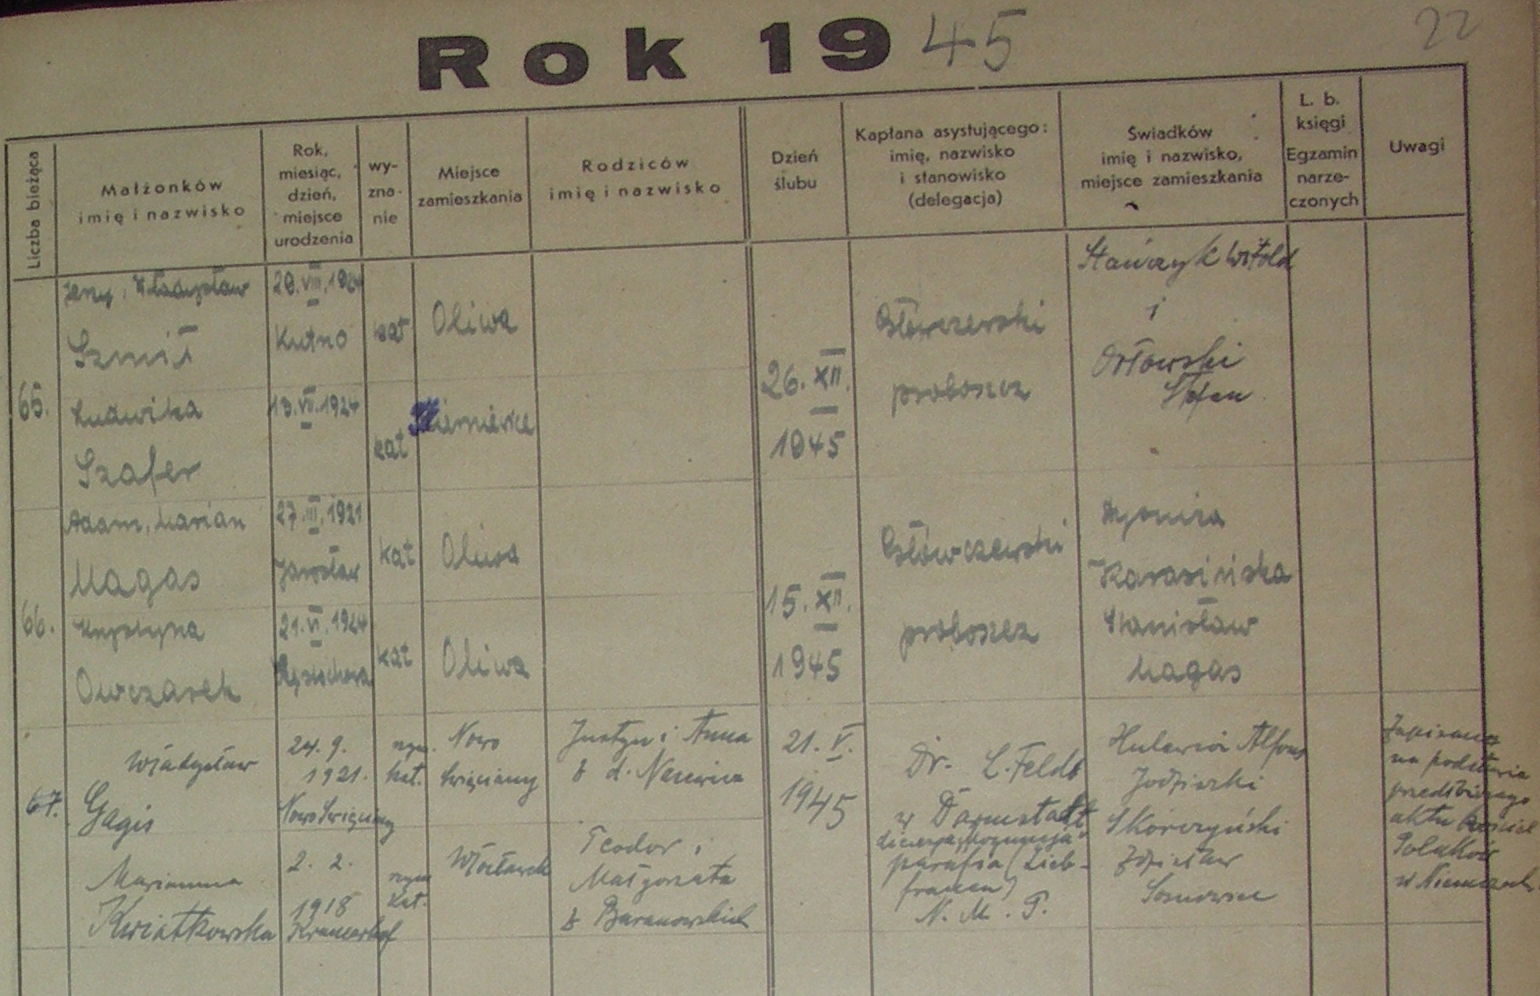 22
Rok 1945
Liczba bieżąca
Małżonków
imię i nazwisko
Rok,
miesiąc,
dzień,
miejsce
urodzenia
wy-
zna-
nie
Miejsce
zamieszkania
Rodziców
imię i nazwisko
Dzień
ślubu
Kapłana asystującego:
imię, nazwisko
i stanowisko
(delegacja)
Świadków
imię i nazwisko,
miejsce zamieszkania
L. b.
księgi
Egzamin
narze-
czonych
Uwagi
65.
Jerzy, Władysław
Szmit
Ludwika
Szafer
VIII.1924
Kutno
13. VII.1924
kat
kat
Oliwa
26. XII.
1945
proboszcz
Stańczyk Witold
i
Orłowski
Stefan
66.
Adam, Marian
Magas
Krystyna
Owczarek
27.III.1921
Jarosław
21.VI.1924
kat
kat
Oliwa
Oliwa
15. XII.
1945
proboszcz
Karasińska
Stanisław
Magas
67.
Władysław
Gagis
Marianna
Kwiatkowska
24. 9.
1921.
Nowo Święciany
2. 2.
1918
rzym.
kat.
rzym
kat.
Nowo
Święciany
Włocławek
Justyn i Anna
z d.
Teodor i
Małgorzata
z Baranowskich
21. V.
1945
Dr. L. Feldt
w Darmstadt
parafia (Lieb-
frauen)
N. M. P.
Alfons
Skorczyński
Zdzisław
Sosnowiec
Zapisano
na podstawie
aktu
Polaków
w Niemczech